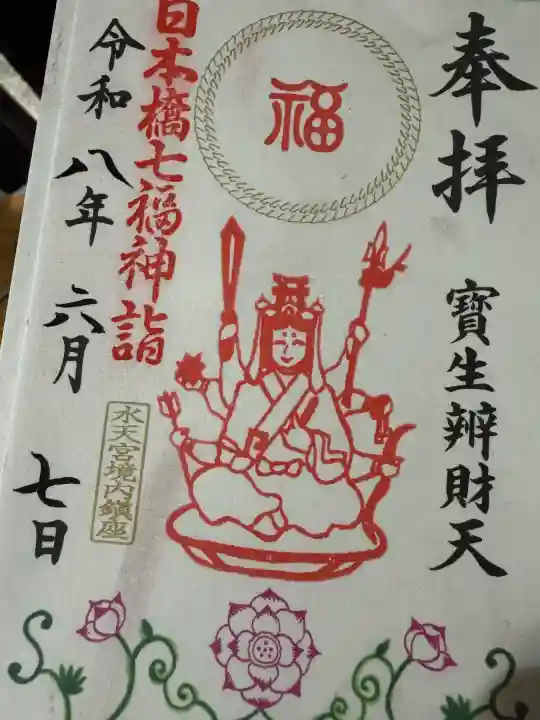 奉拝
寶生辨財天
福
日本橋七福神詣
水天宮境内鎮座
令和八年六月七日